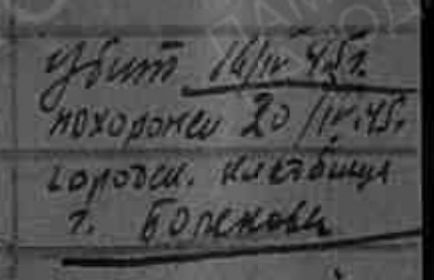 убит 16/IV 45г.
похоронен 20/IV.45г.
городск. кладбище
г.